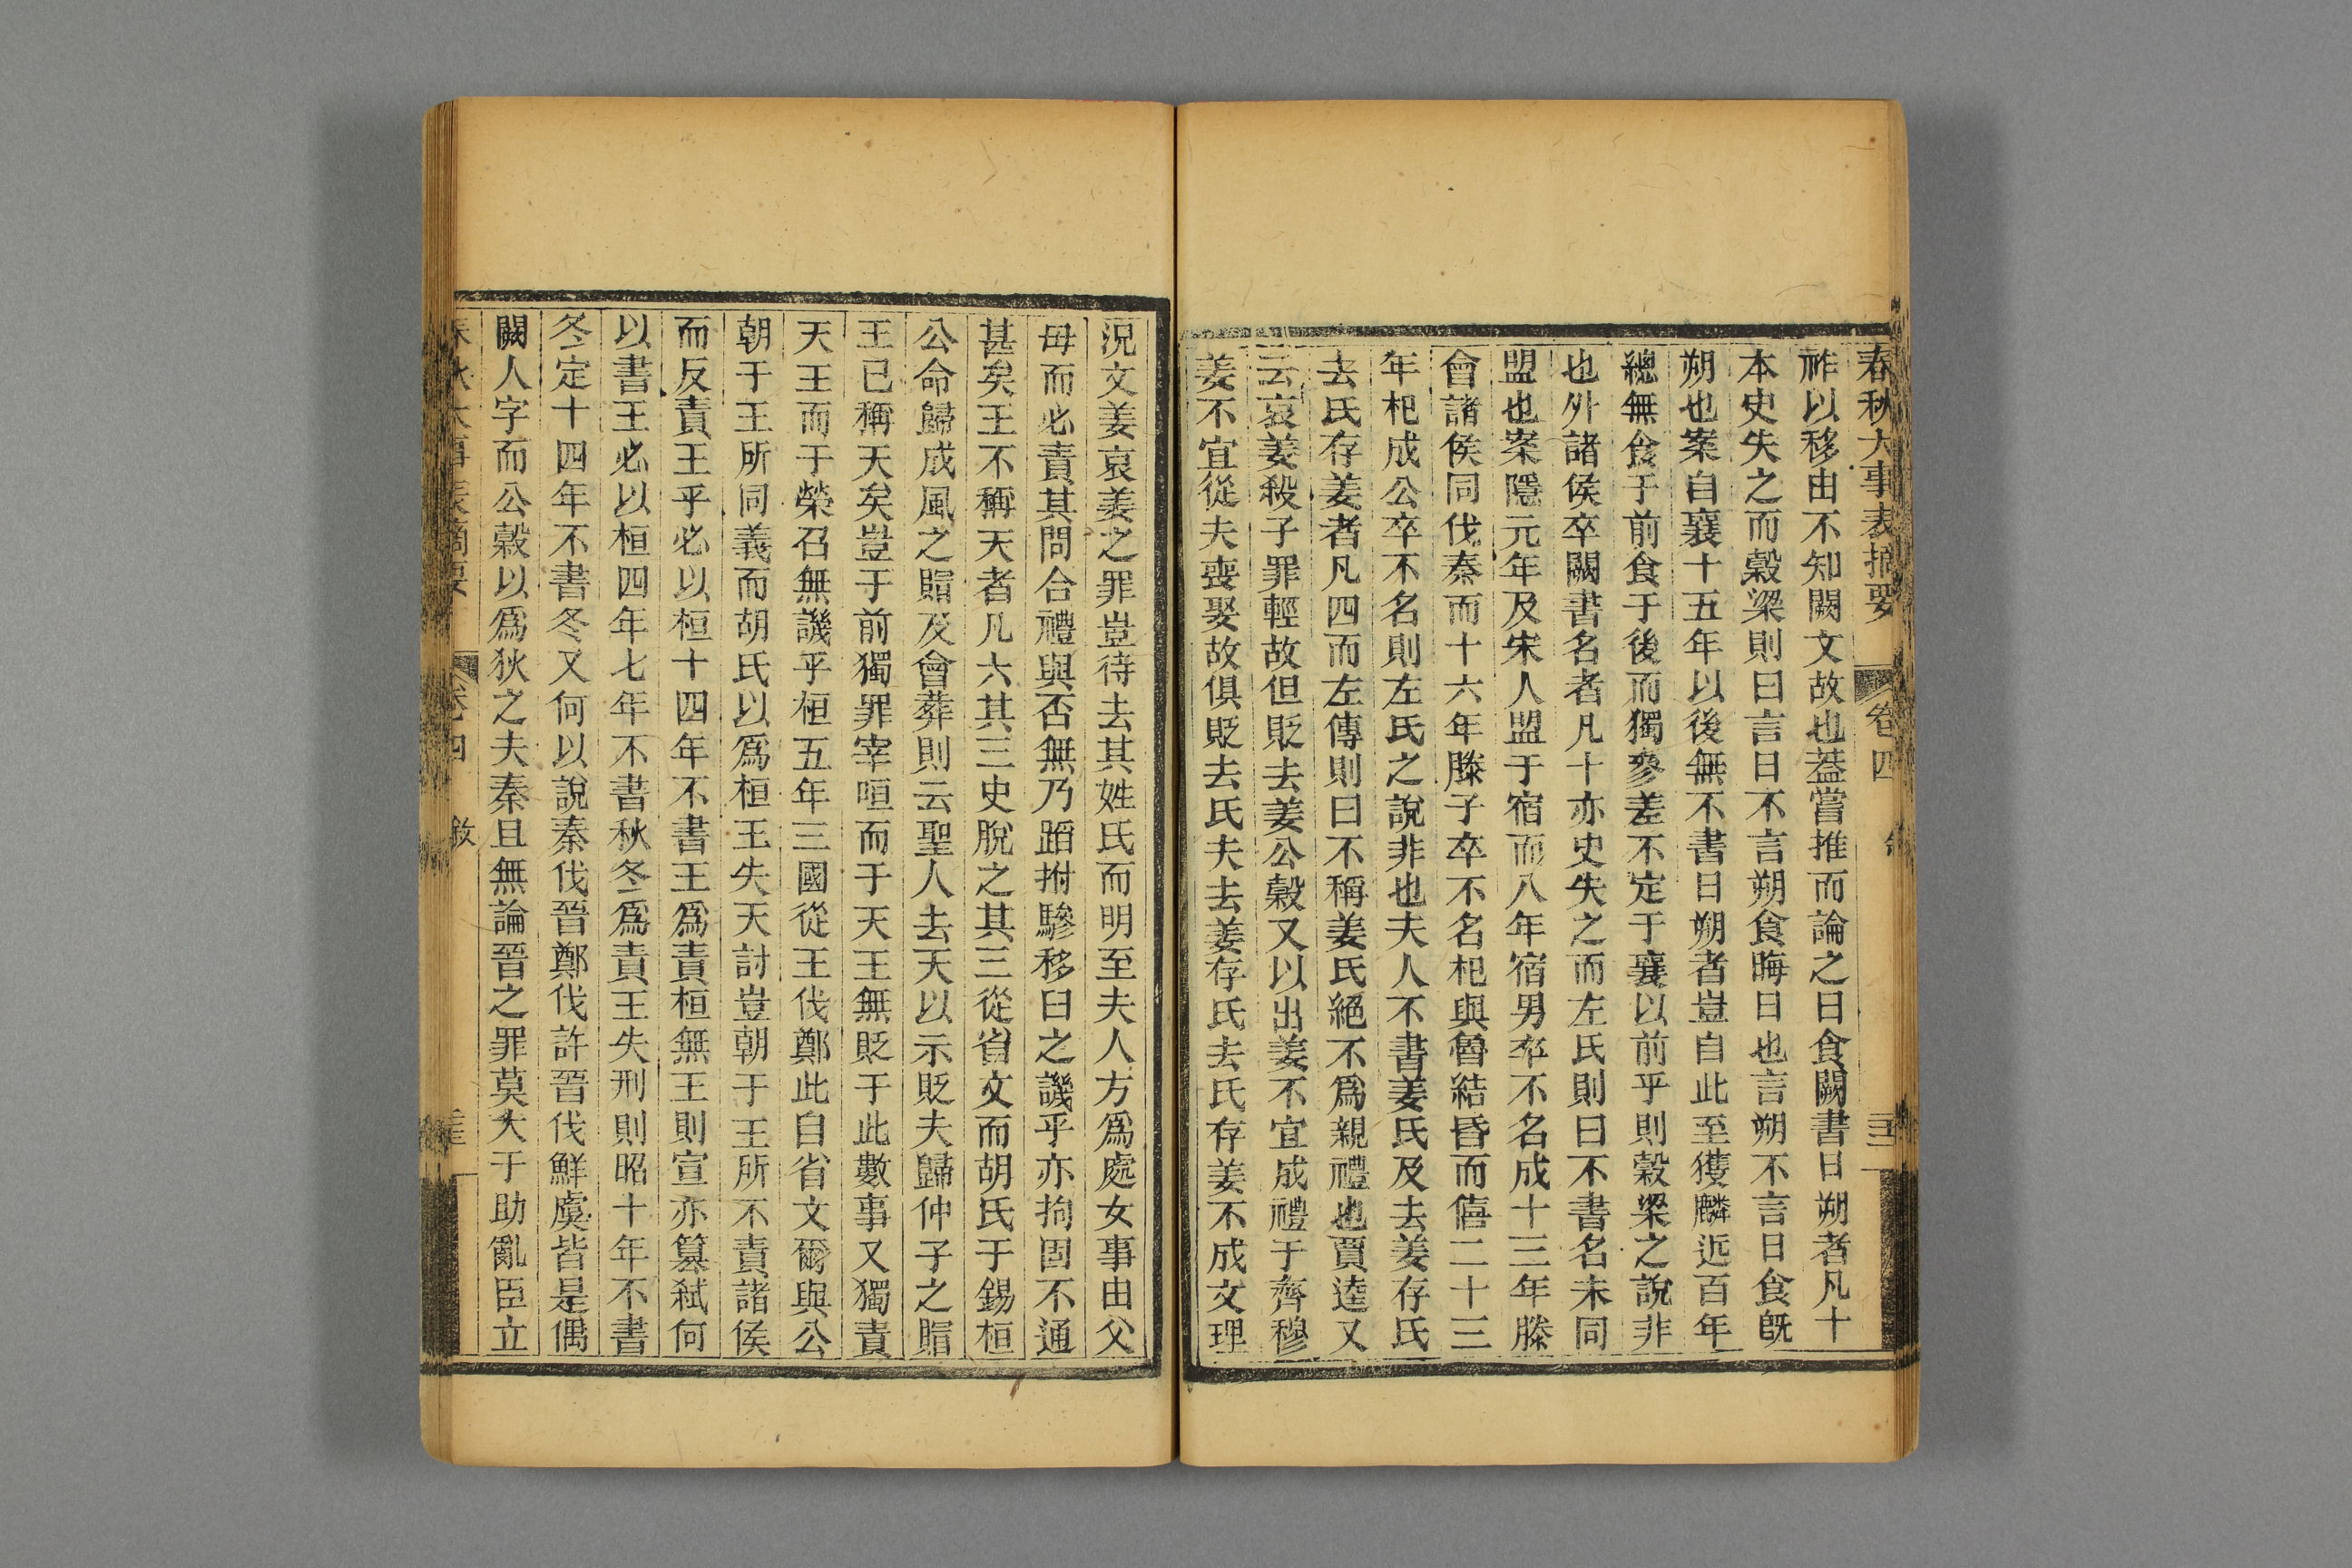 春秋大事表摘要 卷四
祚以移由不知闕文故也蓋嘗推而論之日食闕書日朔者凡十
本史失之而穀梁則曰言日不言朔食晦日也言朔不言日食旣
朔也案自襄十五年以後無不書日朔者豈自此至獲麟近百年
總無食于前食于後而獨參差不定于襄以前乎則穀梁之說非
也外諸侯卒闕書名者凡十亦史失之而左氏則曰不書名未同
盟也案隱元年及宋人盟于宿而八年宿男卒不名成十三年滕
會諸侯同伐秦而十六年滕子卒不名杞與魯結昏而僖二十三
年杞成公卒不名則左氏之說非也夫人不書姜氏及去姜存氏
去氏存姜者凡四而左傳則曰不稱姜氏絕不爲親禮也賈逵又
云哀姜殺子罪輕故但貶去姜公穀又以出姜不宜成禮于齊穆
姜不宜從夫喪娶故俱貶去氏夫去姜存氏去氏存姜不成文理
況文姜哀姜之罪豈待去其姓氏而明至夫人方爲處女事由父
母而必責其問合禮與否無乃蹈拊驂移臼之譏乎亦拘固不通
甚矣王不稱天者凡六其三史脫之其三從省文而胡氏于錫桓
公命歸成風之賵及會葬則云聖人去天以示貶夫歸仲子之賵
王已稱天矣豈于前獨罪宰咺而于天王無貶于此數事又獨責
天王而于榮召無譏乎桓五年三國從王伐鄭此自省文爾與公
朝于王所同義而胡氏以爲桓王失天討豈朝于王所不責諸侯
而反責王乎必以桓十四年不書王爲責桓無王則宣亦簒弒何
以書王必以桓四年七年不書秋冬爲責王失刑則昭十年不書
冬定十四年不書冬又何以說秦伐晉鄭伐許晉伐鮮虞皆是偶
闕人字而公穀以爲狄之夫秦且無論晉之罪莫大于助亂臣立
卷四 敘